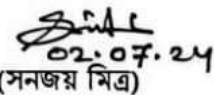 02.07.24
(সনজয় মিত্র)